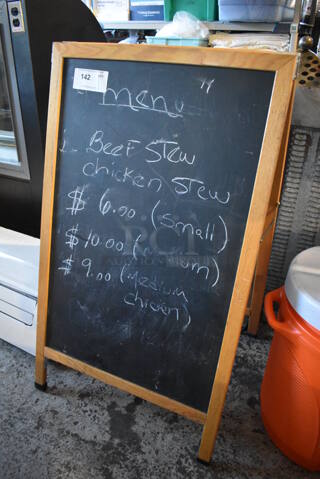 142
menu
Beef Stew
chicken Stew
$ 6.00 (small)
$ 10.00 (
$ 9.00 (Medium
chicken)